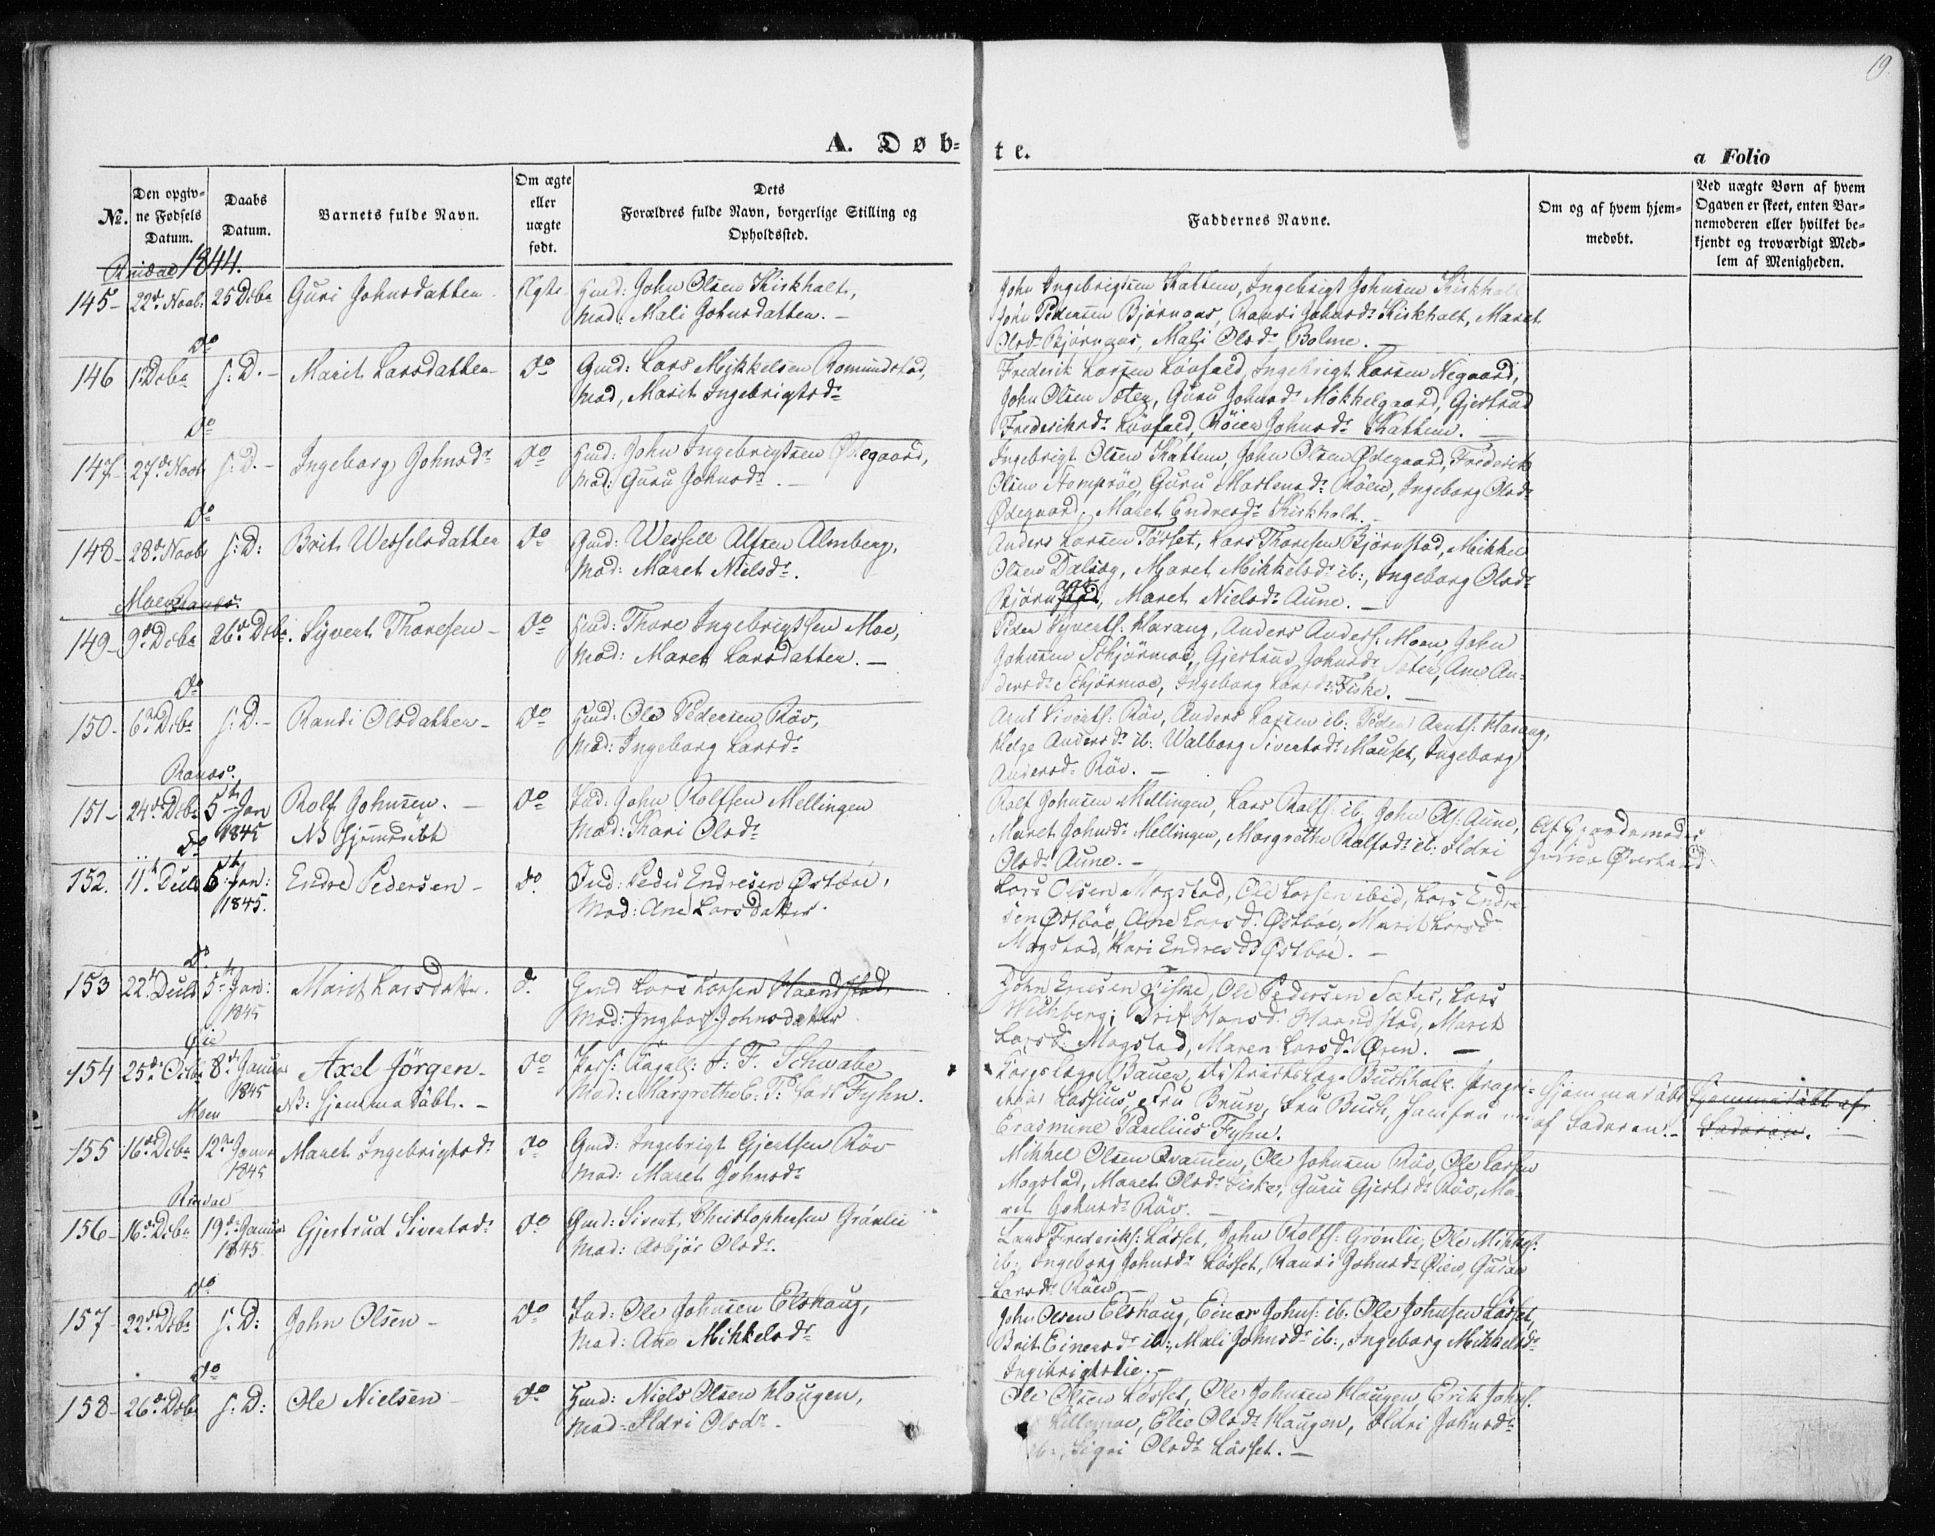 19.
A. Døb-
te.
a Folio
No.
Den opgiv-
ne Fødsels
Datum.
Daabs
Datum.
Barnets fulde Navn.
Om ægte
eller
uægte
født.
Dets
Forældres fulde Navn, borgerlige Stilling og
Opholdssted.
Faddernes Navne.
Om og af hvem hjem-
medøbt.
Ved uægte Børn af hvem
Opgaven er skeet, enten Bar-
nemoderen eller hvilket be-
kjendt og troværdigt Med-
lem af Menigheden.
Rindal 1844.
145- 22d Novb. 25 Dcbr Guri Johnsdatter. Ægte. Gmd: John Olsen Kirkholt,
Mod: Mali Johnsdatter. -
John Ingebrigtsen Kattem, Ingebrigt Johnsen Kirkholt
John Pedersen Bjørnaas, Randi Johnsdr Kirkholt, Maret
Olsdr Bjørnaas, Mali Olsdr Bolme. -
do
146 1 Dcbr s: D. - Marit Larsdatter do Gmd: Lars Mikkelsen Romundstad,
Mod, Marit Ingebrigtsdr
Frederik Larsen Løvfald, Ingebrigt Larsen Negaard,
John Olsen Sæter, Guru Johnsdr Mikkelgaard, Gjertrud
Frederiksdr Løvfald, Johnsdr Kattem. -
do
147- 27d Novb s: D. - Ingeborg Johnsdr do Gmd: John Ingebrigtsen Ødegaard,
Mod: Guru Johnsdr. -
Ingebrigt Olsen Kattem, John Olsen Ødegaard, Frederik
Olsen Stomprøe, Guru Mortensdr Røen, Ingeborg Olsdr
Ødegaard, Maret Endresdr Kirkholt. -
do
148- 28d Novb s: D: Brit Wesselsdatter do Gmd: Wessel Alfsen Almberg,
Mod: Maret Nielsdr.
Anders Larsen Tørset, Lars Thoresen Bjørnstad, Mikkel
Olsen Dalsøg, Maret Mikkelsdr ib:, Ingeborg Olsdr
Maret Nielsdr Aune. -
Moen
149- 9d Dcbr 26d Dcbr. Syvert Thoresen - do Gmd: Thore Ingebrigtsen Moe,
Mod: Maret Larsdatter. -
Peder Syverts: Harang, Anders Anders: Moen, John
Johnsen Schjørmoe, Gjertrud Johnsdr Sæter, Ane An-
dersdr Schjørmoe, Ingeborg Larsdr Fiske. -
do
150- 6d Dcbr s: D. - Randi Olsdatter - do Gmd: Ole Pedersen Røv,
Mod: Ingeborg Larsdr
Arnt Siverts: Røv, Anders Larsen ib: Peder Arnts: Harang,
Helge Andersdr ib: Walborg Sivertsdr Mauset, Ingeborg
Andersdr Røv. -
Ranes.
151- 24d Dcbr 5te Jan 1845 Rolf Johnsen. - do Ind: John Rolfsen Mellingen
NB Hjemdøbt Mod: Kari Olsdr
Rolf Johnsen Mellingen, Lars Rolfs: ib, John Ols: Aune,
Maret Johnsdr Mellingen, Margrethe Rolfsdr ib: Ildri
Olsdr Aune. -
Af Gjordemoder
do
152. 11t Dcbr 5 Jan: 1845. Endre Pedersen - do. Ind: Peder Endresen Østbøe,
Mod: Ane Larsdatter.
Lars Olsen Mogstad, Ole Larsen ibid, Lars Endre-
sen Østbøe, Ane Larsd. Østbøe, Marit Larsd
Mogstad, Kari Endresd Østbøe. -
do
153 22d Dcbr 5te Jan: 1845 Marit Larsdatter. d. Gmd Lars Larsen Haandstad,
Mod: Ingbor. Johnsdatter.
John Ericsen Fiske, Ole Pedersen Sæter, Lars
Brit Hansd. Haandstad, Maret
Larsd. Mogstad, Maren Larsd. Øren. -
Øie
154 25d Octbr 8d Januar 1845 Axel Jörgen - do J. F. Schwabe
NB: Hjemmedöbt. - Mod: Margrethe E. P. Fyhn.
Korpslæge Bauer, Districtslæge Buckholt
Fru Brun, Fru Buch, Jomfru
Erasmine Parelius Fyhn.
Hjemmedöbt
af Faderen. -
Hjemmedöbt af
Faderen.
Moen
155 16d Dcbr 12te Januar 1845 Maret Ingebrigtsdr do Gmd: Ingebrigt Gjertsen Röv
Mod: Maret Johnsdr
Mikkel Olsen Kvammen, Ole Johnsen Röv, Ole Larsen
Mogstad, Maret Olsdr Fiske, Guru Gjertsdr Röv, Ma-
ret Johnsdr Röv. -
Rindal
156- 16d Dcbr 19d Januar 1845. Gjertrud Sivertsdr do Gmd: Sivert Christophersen Grönlie
Mod: Asbjör Olsdr.
Lars Frederiks: Løsset, John Rolfs: Grönlie, Ole Mikkels:
ib: Ingeborg Johnsdr Løsset, Randi Johnsdr Øien, Guran
Larsdr Röen. -
do
157- 22d Dcbr s: D: John Olsen - do Ind: Ole Johnsen Elshaug,
Mod: Ane Mikkelsdr
John Olsen Elshaug, Einer Johns: ib: Ole Johnsen Løsset,
Brit Einersdr ib:, Mali Johnsdr ib:, Ingeborg Mikkelsdr
Ingebrigtslie. -
do
158- 26d Dcbr s: D: Ole Nielsen do Gmd: Niels Olsen Haugen,
Mod: Ildri Olsdr. -
Ole Olsen Løsset, Ole Johnsen Haugen, Erik Johns:
Lillemoe, Elie Olsdr Haugen, Ildri Johnsdr
ib:, Sigri Olsdr Løsset. -